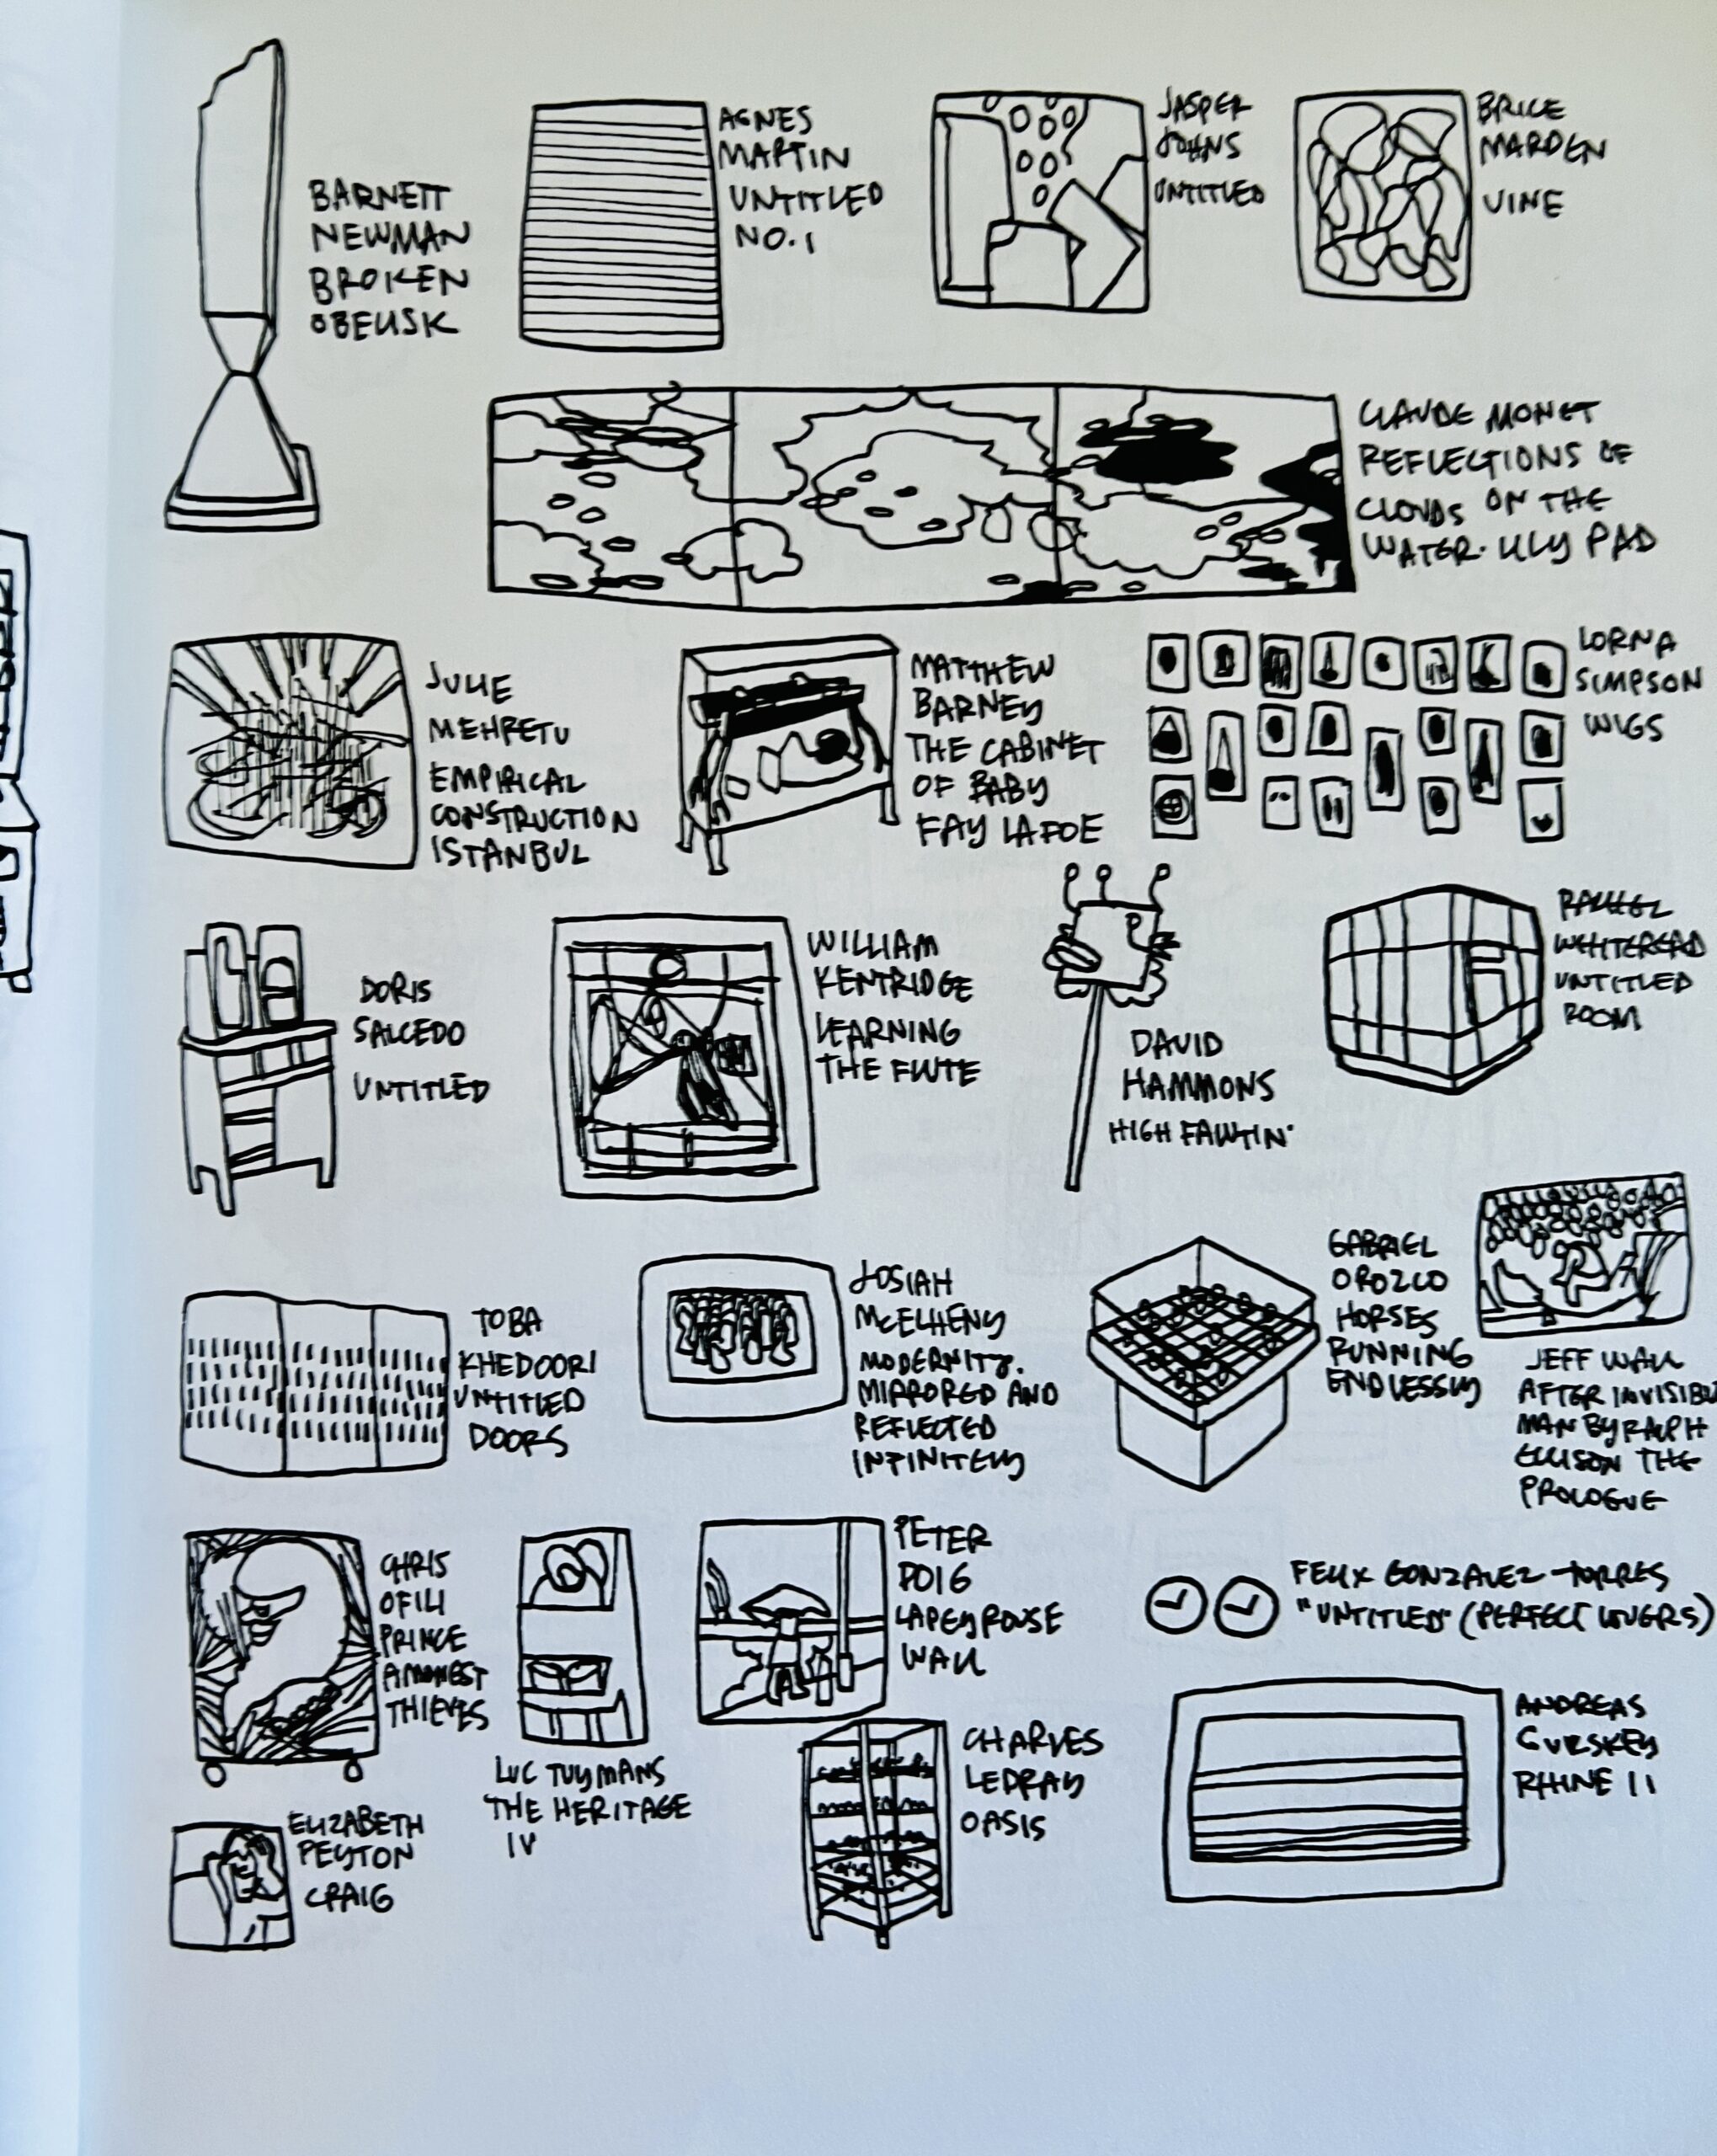 BARNETT
NEWMAN
BROKEN
OBELISK
AGNES
MARTIN
UNTITLED
NO. 1
JASPER
JOHNS
UNTITLED
BRICE
MARDEN
VINE
CLAUDE MONET
REFLECTIONS OF
CLOUDS ON THE
WATER-LILY PAD
JULIE
MEHRETU
EMPIRICAL
CONSTRUCTION
ISTANBUL
MATTHEW
BARNEY
THE CABINET
OF BABY
FAY LAFOE
LORNA
SIMPSON
WIGS
DORIS
SALCEDO
UNTITLED
WILLIAM
KENTRIDGE
LEARNING
THE FLUTE
DAVID
HAMMONS
HIGH FALUTIN'
RACHEL
WHITEREAD
UNTITLED
ROOM
TOBA
KHEDOORI
UNTITLED
DOORS
JOSIAH
McELHENY
MODERNITY.
MIRRORED AND
REFLECTED
INFINITELY
GABRIEL
OROZCO
HORSES
RUNNING
ENDLESSLY
JEFF WALL
AFTER INVISIBLE
MAN BY RALPH
ELLISON THE
PROLOGUE
CHRIS
OFILI
PRINCE
AMONGST
THIEVES
LUC TUYMANS
THE HERITAGE
IV
PETER
DOIG
LAPEYROUSE
WALL
FELIX GONZALEZ-TORRES
"UNTITLED" (PERFECT LOVERS)
ELIZABETH
PEYTON
CRAIG
CHARLES
LEDRAY
OASIS
ANDREAS
GURSKEY
RHINE II